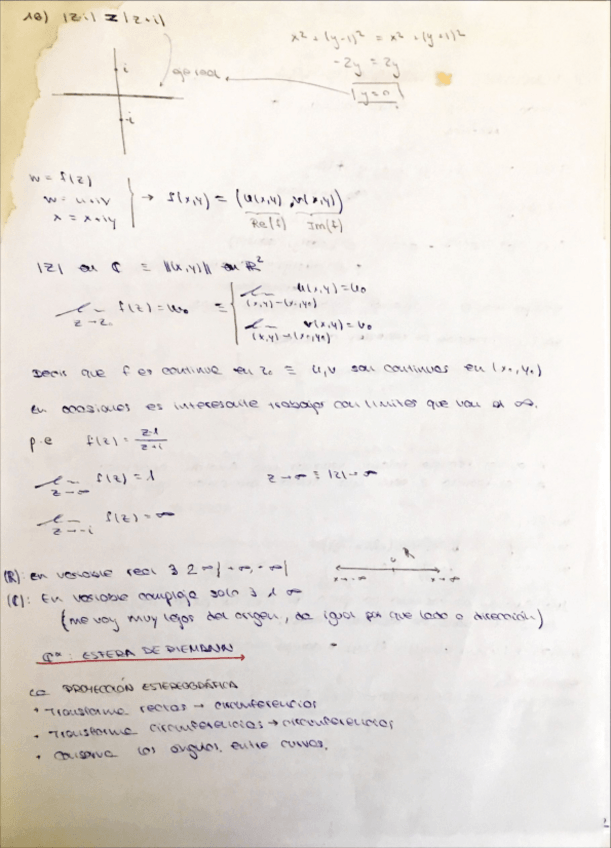 1e) |z-i| = |z+i|
x² + (y-1)² = x² + (y+1)²
-2y = 2y
y=0
i
eje real
-i
w = f(z)
w = u+iv
z = x+iy
→ f(x,y) = (u(x,y), v(x,y))
Re(f) Im(f)
|z| en ℂ ≡ ||(x,y)|| en ℝ²
lim f(z) = w₀ ≡
z→z₀
lim u(x,y) = u₀
(x,y)→(x₀,y₀)
lim v(x,y) = v₀
(x,y)→(x₀,y₀)
Decir que f es continua en z₀ ≡ u,v son continuas en (x₀,y₀)
En ocasiones es interesante trabajar con limites que van al ∞.
p.e f(z) = z-1/z+i
lim f(z) = 1 z→∞ ≡ |z|→∞
z→∞
lim f(z) = ∞
z→-i
(ℝ): En variable real ∃ 2 ∞ {+∞, -∞}
ℝ
0
x→-∞ x→∞
(ℂ): En variable compleja solo ∃ 1 ∞
(me voy muy lejos del origen, da igual por que lado o dirección)
ℂ*: ESFERA DE RIEMANN
La PROYECCIÓN ESTEREOGRÁFICA
• Transforma rectas → circunferencias
• Transforma circunferencias → circunferencias
• Conserva los ángulos entre curvas.